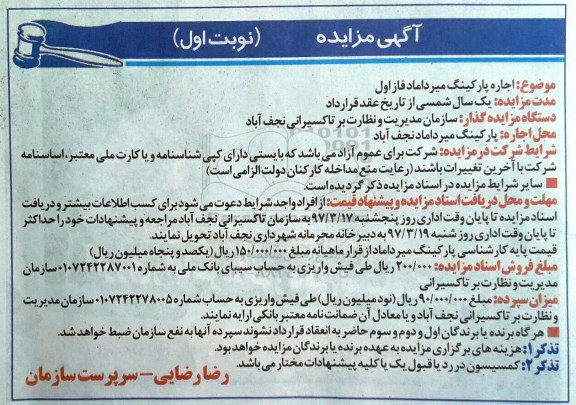 آگهی مزایده (نوبت اول)
موضوع: اجاره پارکینگ میرداماد فاز اول
مدت مزایده: یک سال شمسی از تاریخ عقد قرارداد
دستگاه مزایده گذار: سازمان مدیریت و نظارت بر تاکسیرانی نجف آباد
محل اجاره: پارکینگ میرداماد نجف آباد
شرایط شرکت در مزایده: شرکت برای عموم آزاد می باشد که بایستی دارای کپی شناسنامه و یا کارت ملی معتبر، اساسنامه
شرکت با آخرین تغییرات باشند (رعایت منع مداخله کارکنان دولت الزامی است)
■ سایر شرایط مزایده در اسناد مزایده ذکر گردیده است.
مهلت و محل دریافت اسناد مزایده و پیشنهاد قیمت: از افراد واجد شرایط دعوت می شود برای کسب اطلاعات بیشتر و دریافت
اسناد مزایده تا پایان وقت اداری روز پنجشنبه ۹۷/۳/۱۷ به سازمان تاکسیرانی نجف آباد مراجعه و پیشنهادات خود را حداکثر
تا پایان وقت اداری روز شنبه ۹۷/۳/۱۹ به دبیرخانه محرمانه شهرداری نجف آباد تحویل نمایند.
قیمت پایه کارشناسی پارکینگ میرداماد از قرار ماهیانه مبلغ ۱۵۰/۰۰۰/۰۰۰ ریال (یکصد و پنجاه میلیون ریال)
مبلغ فروش اسناد مزایده: ۲۰۰/۰۰۰ ریال طی فیش واریزی به حساب سیبای بانک ملی به شماره ۰۱۰۷۲۴۲۲۸۷۰۰۱ سازمان
مدیریت و نظارت بر تاکسیرانی
میزان سپرده: مبلغ ۹۰/۰۰۰/۰۰۰ ریال (نود میلیون ریال) طی فیش واریزی به حساب شماره ۰۱۰۷۲۴۲۲۷۸۰۰۵ سازمان مدیریت
و نظارت بر تاکسیرانی نجف آباد و یا معادل آن ضمانت نامه معتبر بانکی ارایه نمایند.
■ هرگاه برنده یا برندگان اول و دوم و سوم حاضر به انعقاد قرارداد نشوند سپرده آنها به نفع سازمان ضبط خواهد شد.
تذکر۱: هزینه های برگزاری مزایده به عهده برنده یا برندگان مزایده خواهد بود.
تذکر۲: کمسیسون در رد یا قبول یک یا کلیه پیشنهادات مختار می باشد.
رضا رضایی - سرپرست سازمان